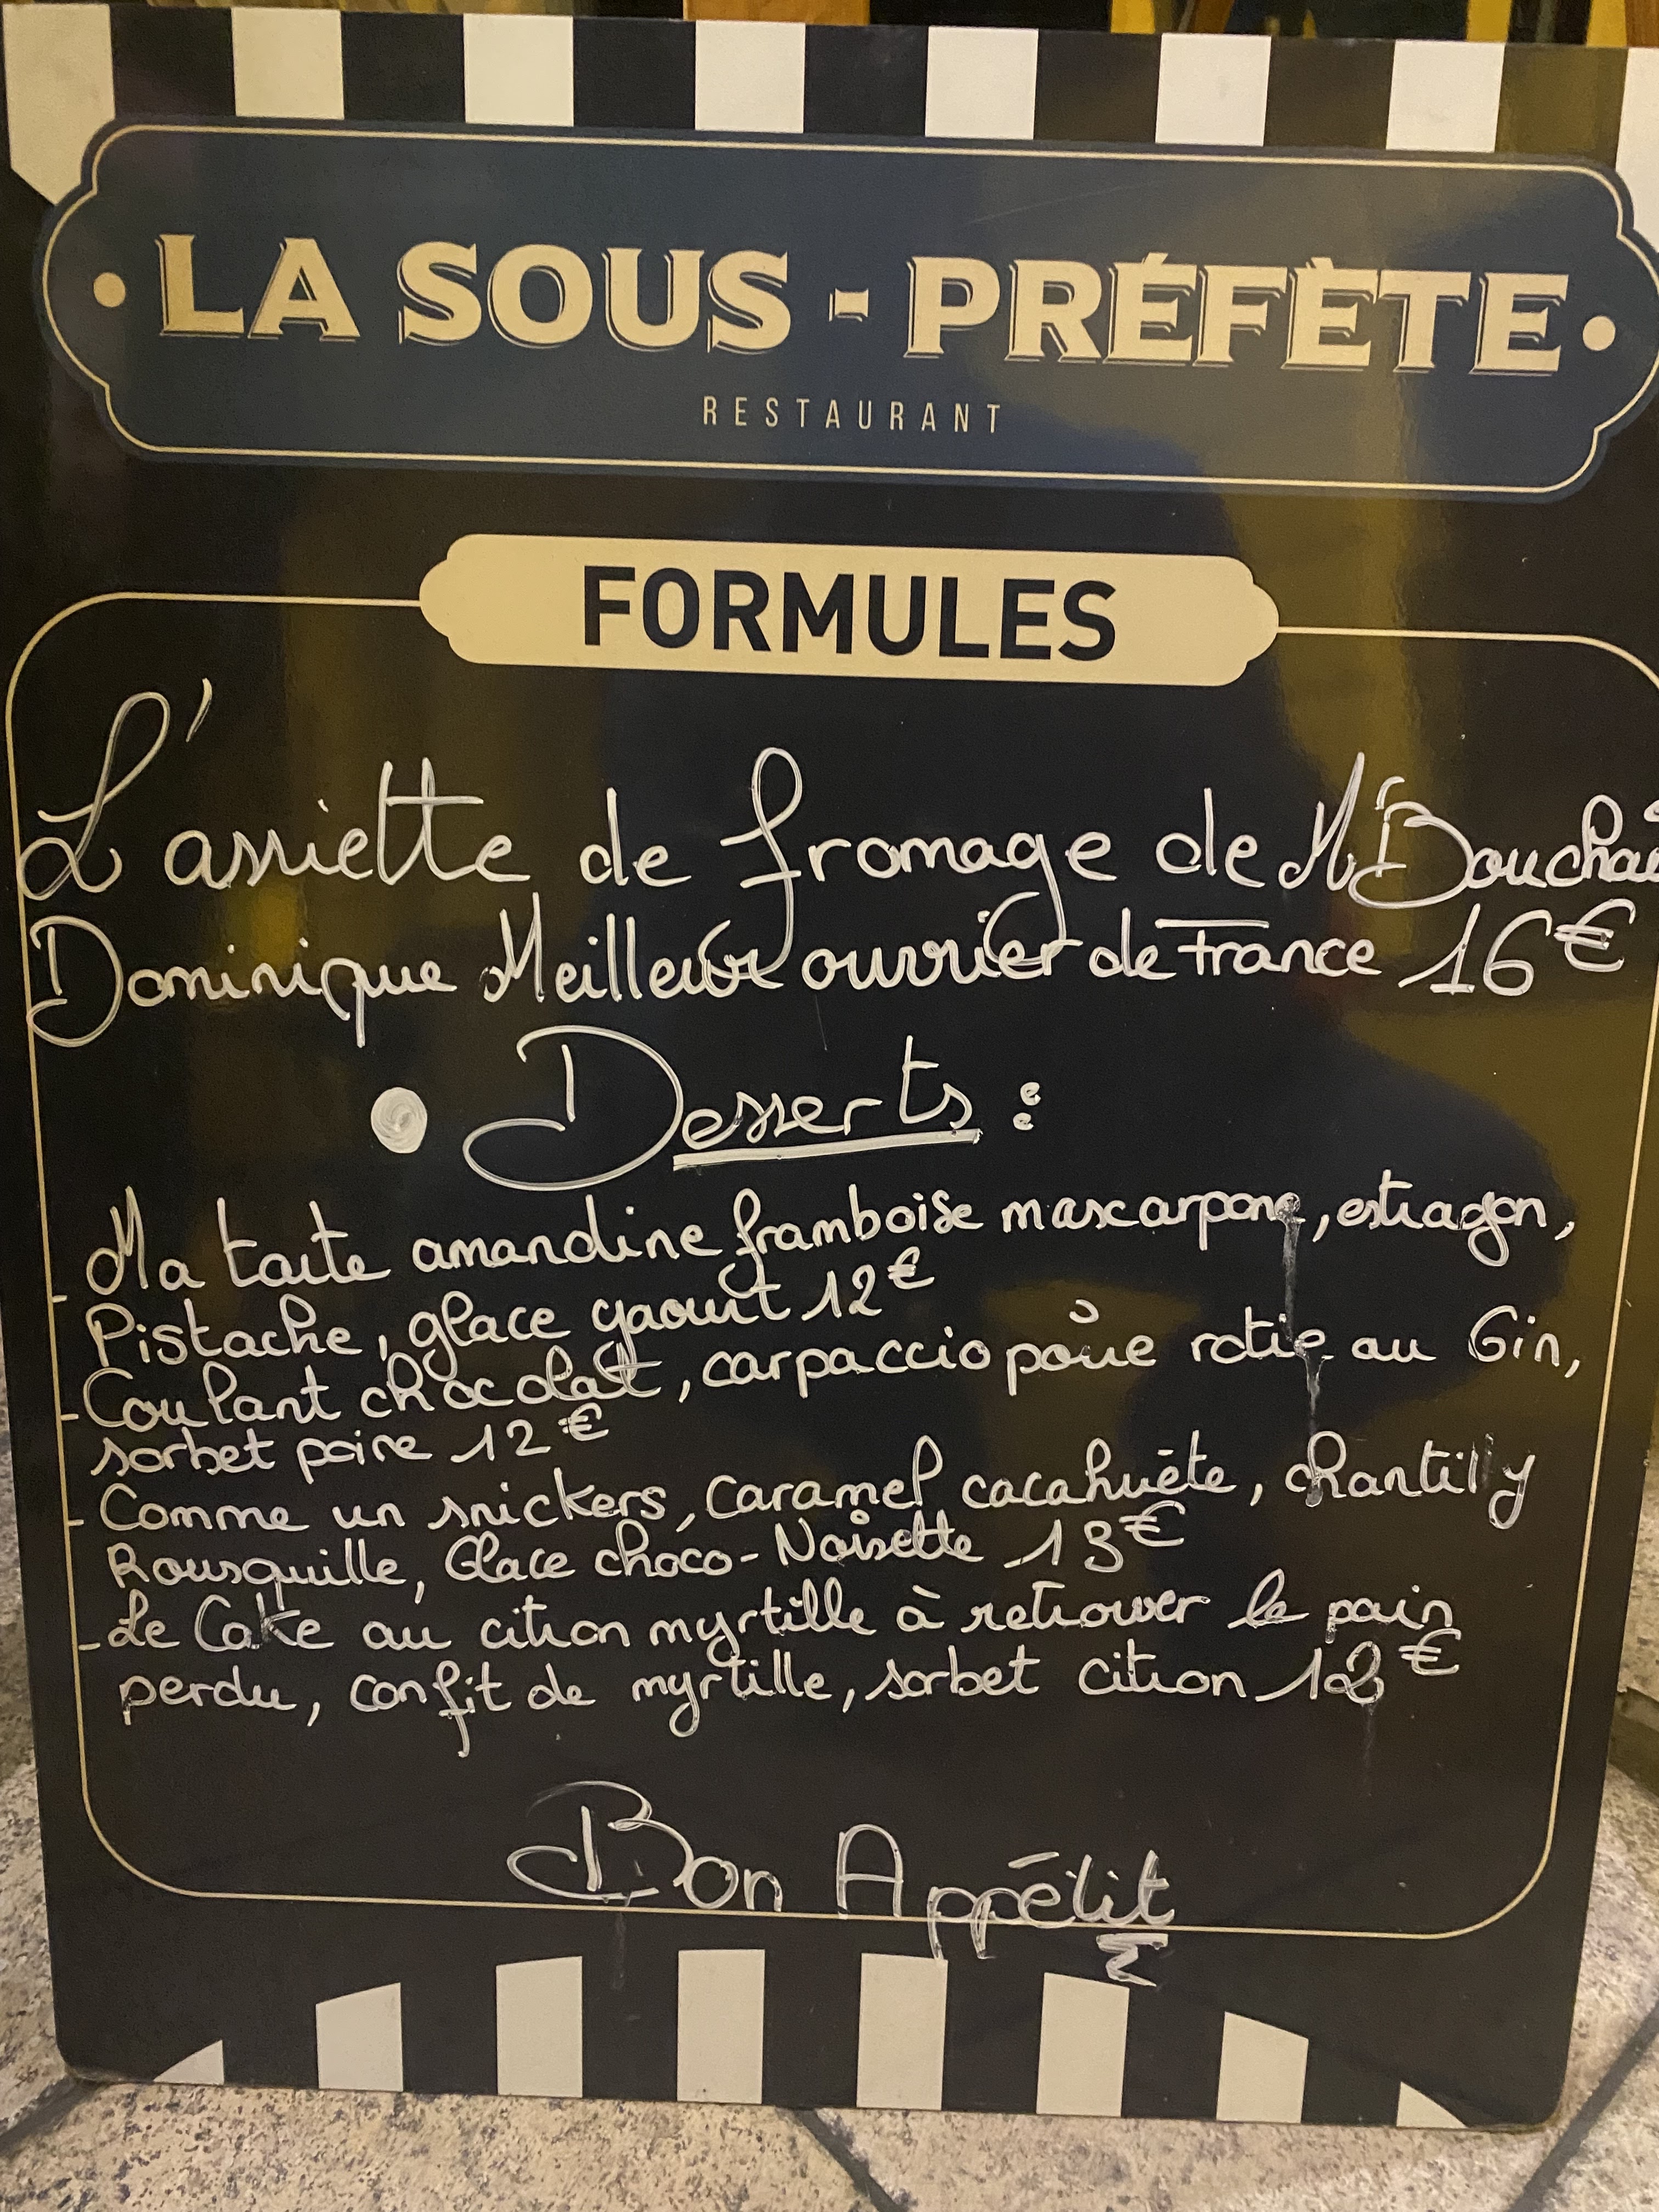 LA SOUS - PRÉFÈTE
RESTAURANT
FORMULES
L'
L'assiette de fromage de Mr
Dominique Meilleur ouvrier de France 16€
Desserts :
- Ma tarte amandine framboise mascarpone, estragon,
Pistache, glace yaourt 12€
- Coulant chocolat, carpaccio poire rotie au Gin,
sorbet poire 12€
- Comme un snickers, Caramel cacahuète, chantilly
Rousquille, Glace choco-Noisette 13€
- Le Cake au citron myrtille à retrouver le pain
perdu, confit de myrtille, sorbet citron €
Bon Appétit